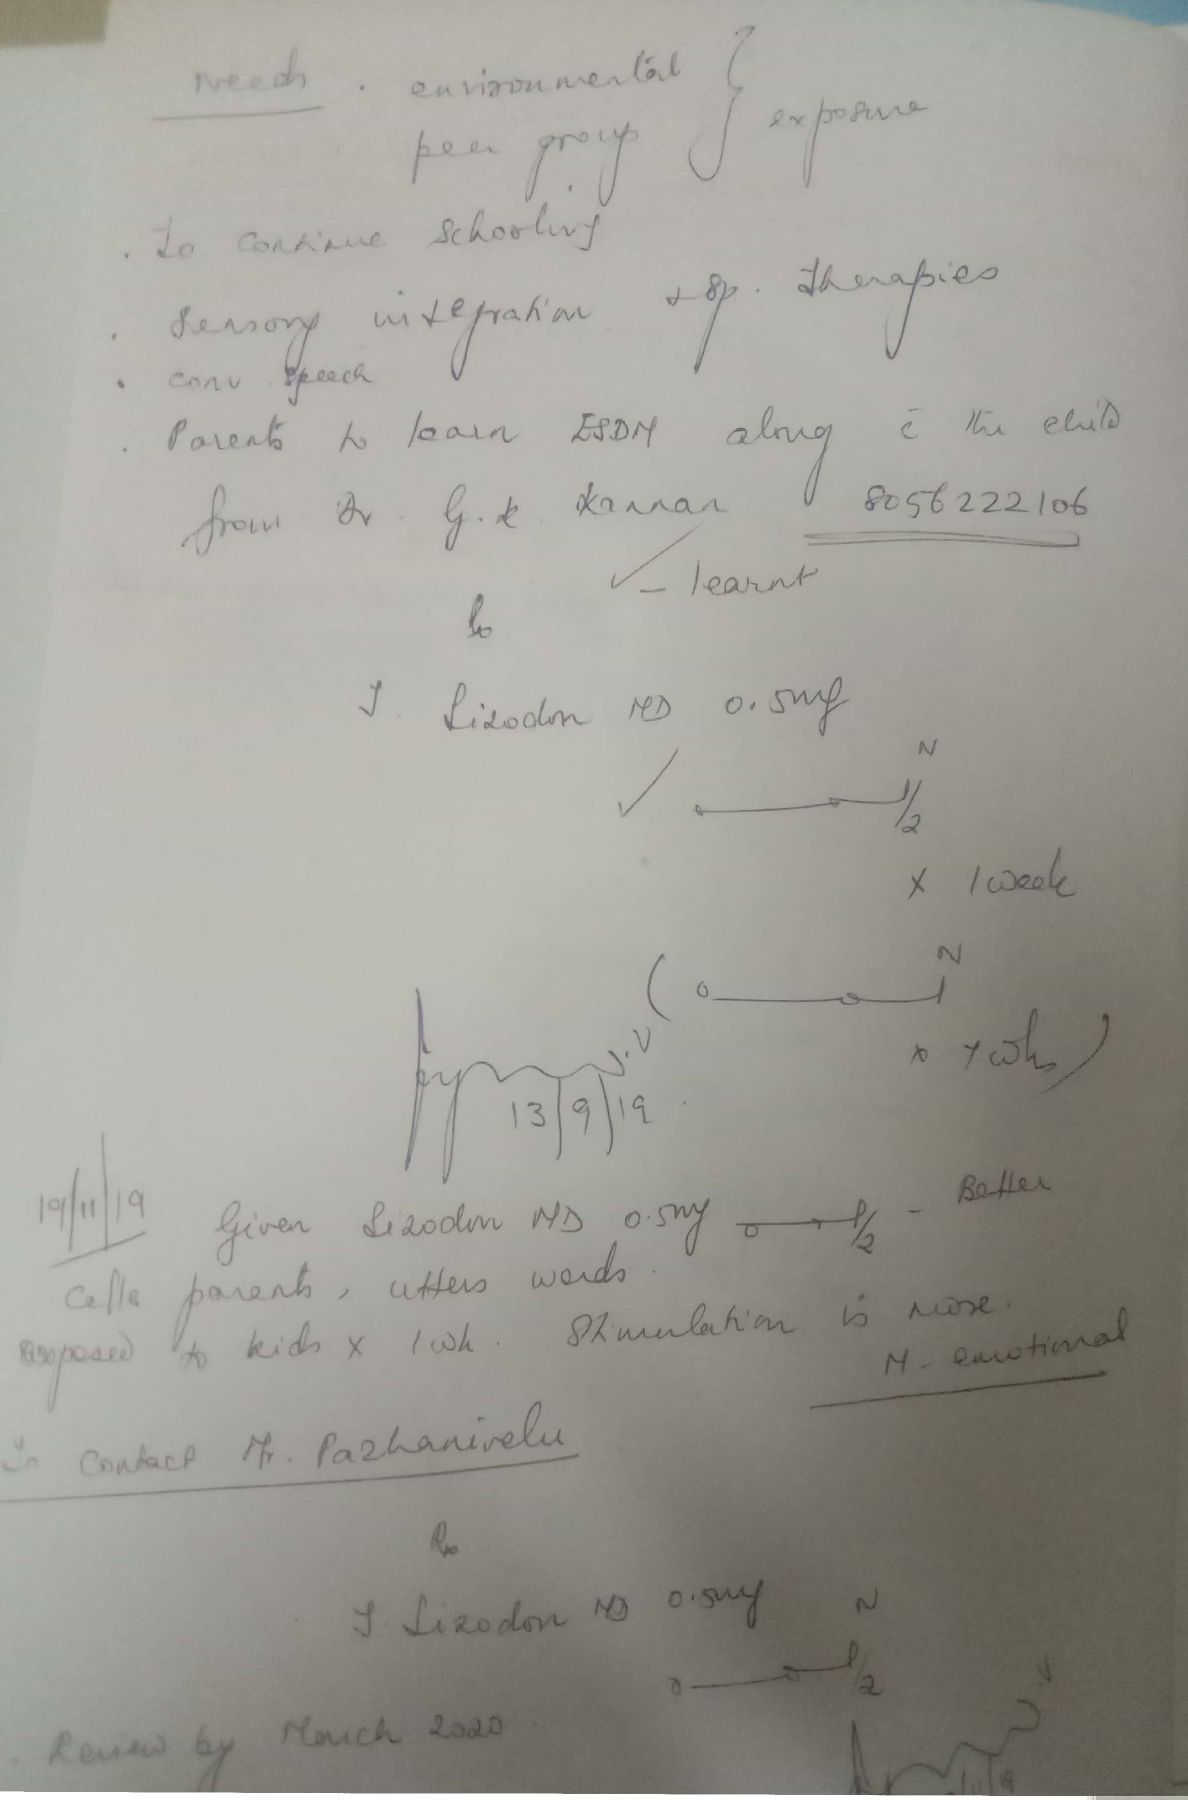 Needs . environmental } exposure
peer group
. To continue schooling
. Sensory integration + Sp. Therapies
. conv. speech
. Parents to learn ESDM along c̄ the child
from Dr. G.K. Kannan 8056222106
✓ - learnt
Rx
T. Sizodon MD 0.5mg
N
✓ o—o—1/2
x 1 week
N
( o—o—1
x 7 wks )
13/9/19
19/11/19 Given Sizodon MD 0.5mg o—o—1/2 - Better
Calls parents, utters words.
Exposed to kids x 1 wk. Stimulation is more.
M - emotional
In contact Mr. Pazhanivelu
Rx
T. Sizodon MD 0.5mg N
o—o—1/2
. Review by March 2020.